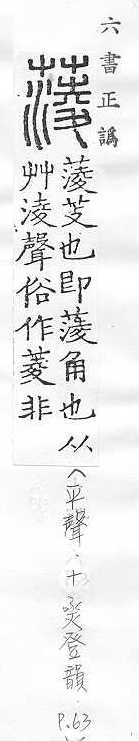 六書正譌
蔆
蔆芰也即蔆角也从
艸淩聲俗作菱非
〈平聲·十烝登韻·P.63